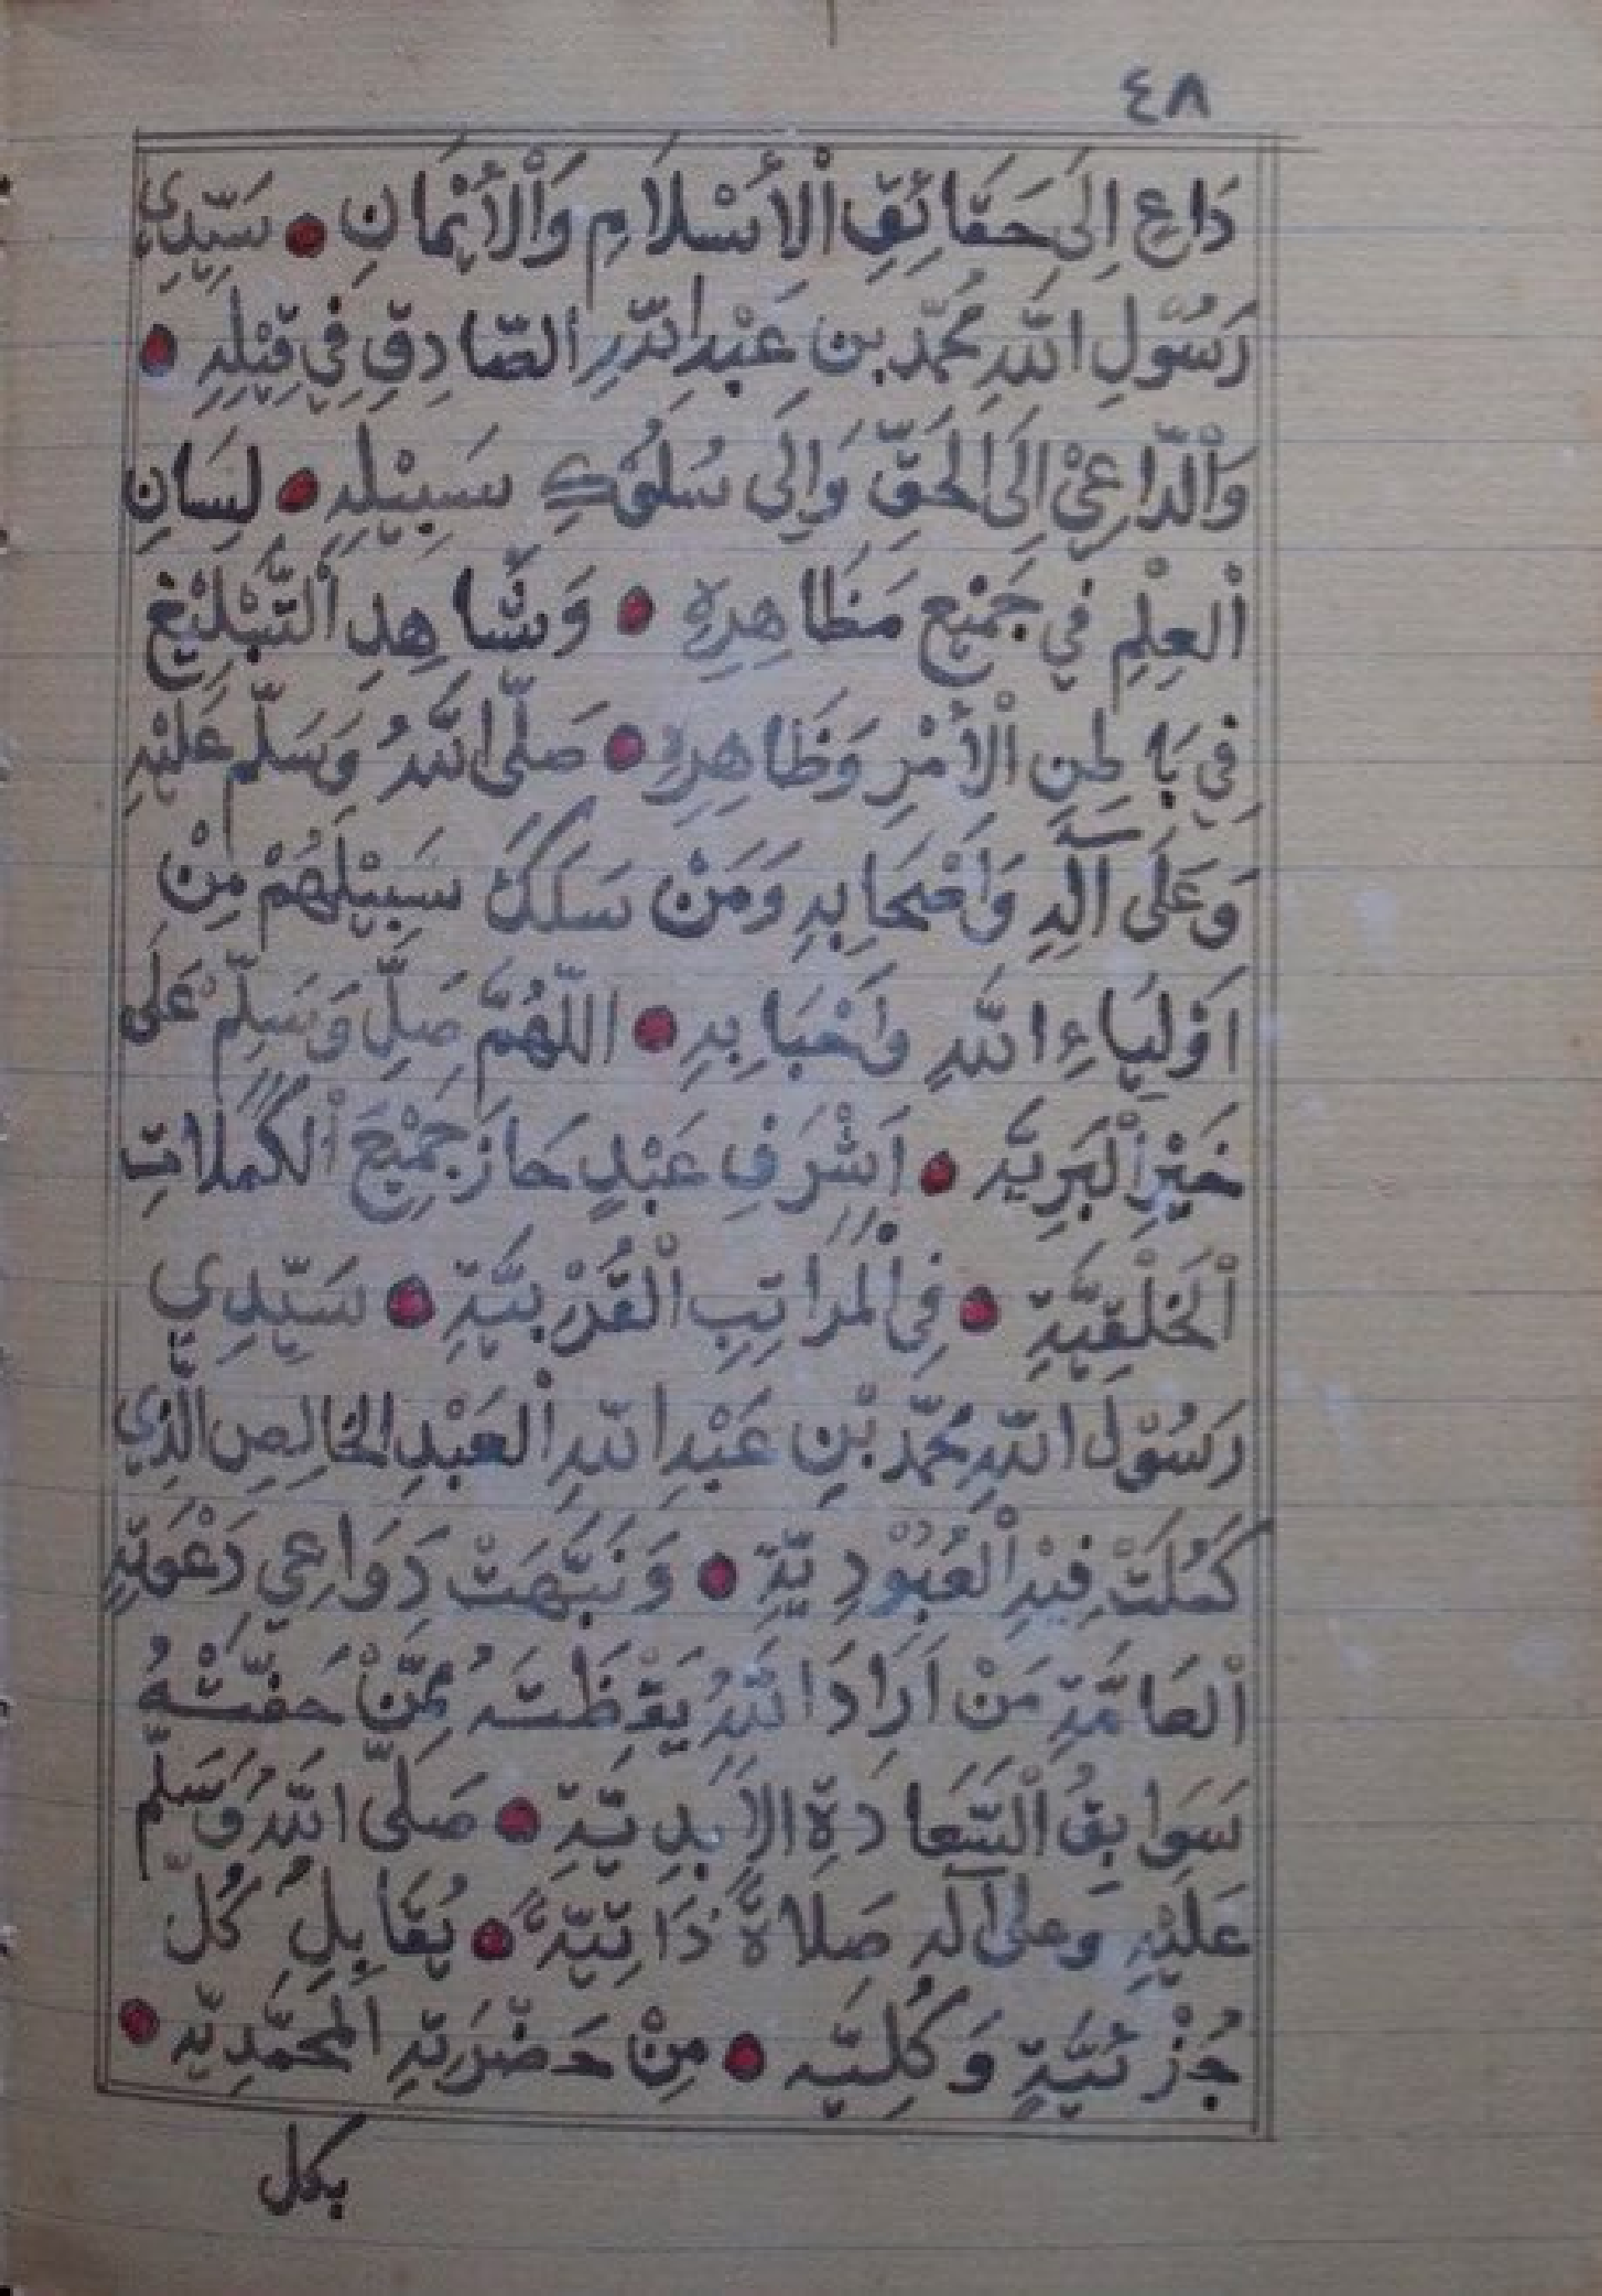 ٤٨
دَاعٍ اِلَى حَقَائِقِ الْأسْلَامِ وَالْأيْمَانِ • سَيِّدِي
رَسُوْلِ اللّٰهِ مُحَمَّد بن عَبْدِ اللّٰهِ الصَّادِقِ فِي قِيْلِهِ •
وَالدَّاعِيْ اِلَى الْحَقِّ وَاِلَى سُلُوْكِ سَبِيْلِهِ • لِسَانِ
الْعِلْمِ فِي جَمِيْعِ مَظَاهِرِهِ • وَشَاهِدِ التَّبْلِيْغِ
فِي بَاطِنِ الْأمْرِ وَظَاهِرِهِ • صَلَّى اللّٰهُ وَسَلَّم عَلَيْهِ
وَعَلَى آلِهِ وَاَصْحَابِهِ وَمَنْ سَلَكَ سَبِيْلَهُمْ مِنْ
اَوْلِيَاءِ اللّٰهِ وَاَحْبَابِهِ • اللّٰهُمَّ صَلِّ وَسَلِّمْ عَلَى
خَيْرِ الْبَرِيَّه • اَشْرَفِ عَبْدٍ حَازَ جَمِيْعَ الْكَمَلَاتِ
الْخَلْقِيَّةِ • فِى الْمَرَاتِبِ الْقُرْبِيَّةِ • سَيِّدِي
رَسُوْلِ اللّٰهِ مُحَمَّد بْنِ عَبْدِ اللّٰهِ الْعَبْدِ الْخَالِصِ الَّذِي
كَمُلَتْ فِيْهِ الْعُبُوْدِيَّةِ • وَنَبَّهَتْ دَوَاعِي دَعْوَتِهِ
الْعَامَّةِ مَنْ اَرَادَ اللّٰهُ يَقْظَتَهُ مِمَّنْ حَفَّتْهُ
سَوَابِقُ السَّعَادَةِ الاَبَدِيَّةِ • صَلَّى اللّٰهُ وَسَلَّم
عَلَيْهِ وَعلى آله صَلَاةً ذَاتِيَّةً • يُقَابِلُ كُلَّ
جُزْئِيَّةٍ وَكُلِّيَّه • مِنْ حَضْرَتِهِ الْمُحَمَّدِيَّه •
بكل